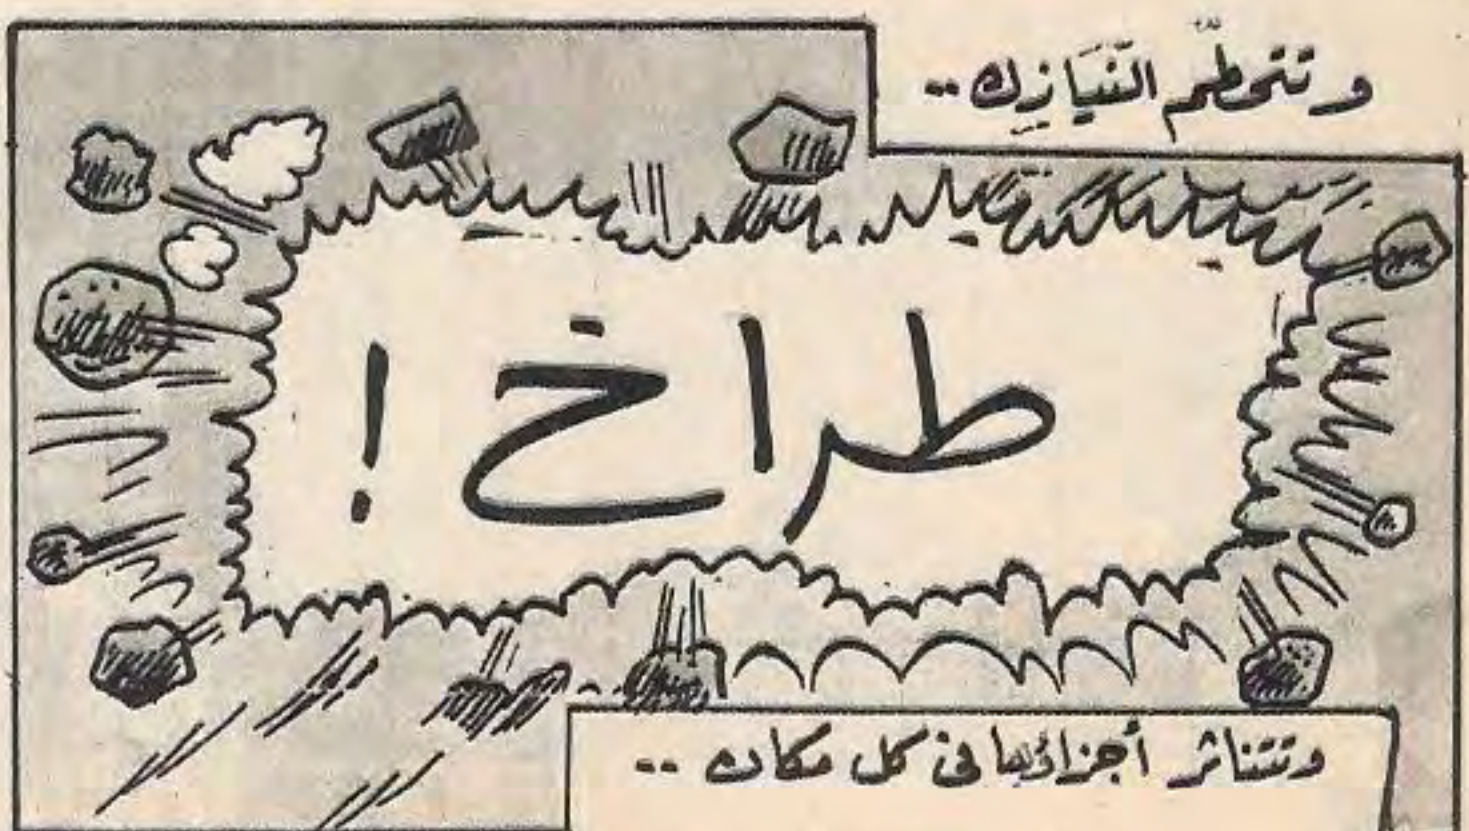 وتتحطّم النَّيَازِك ..
طراخ !
وتتناثر أجزاؤها فى كل مكان ..